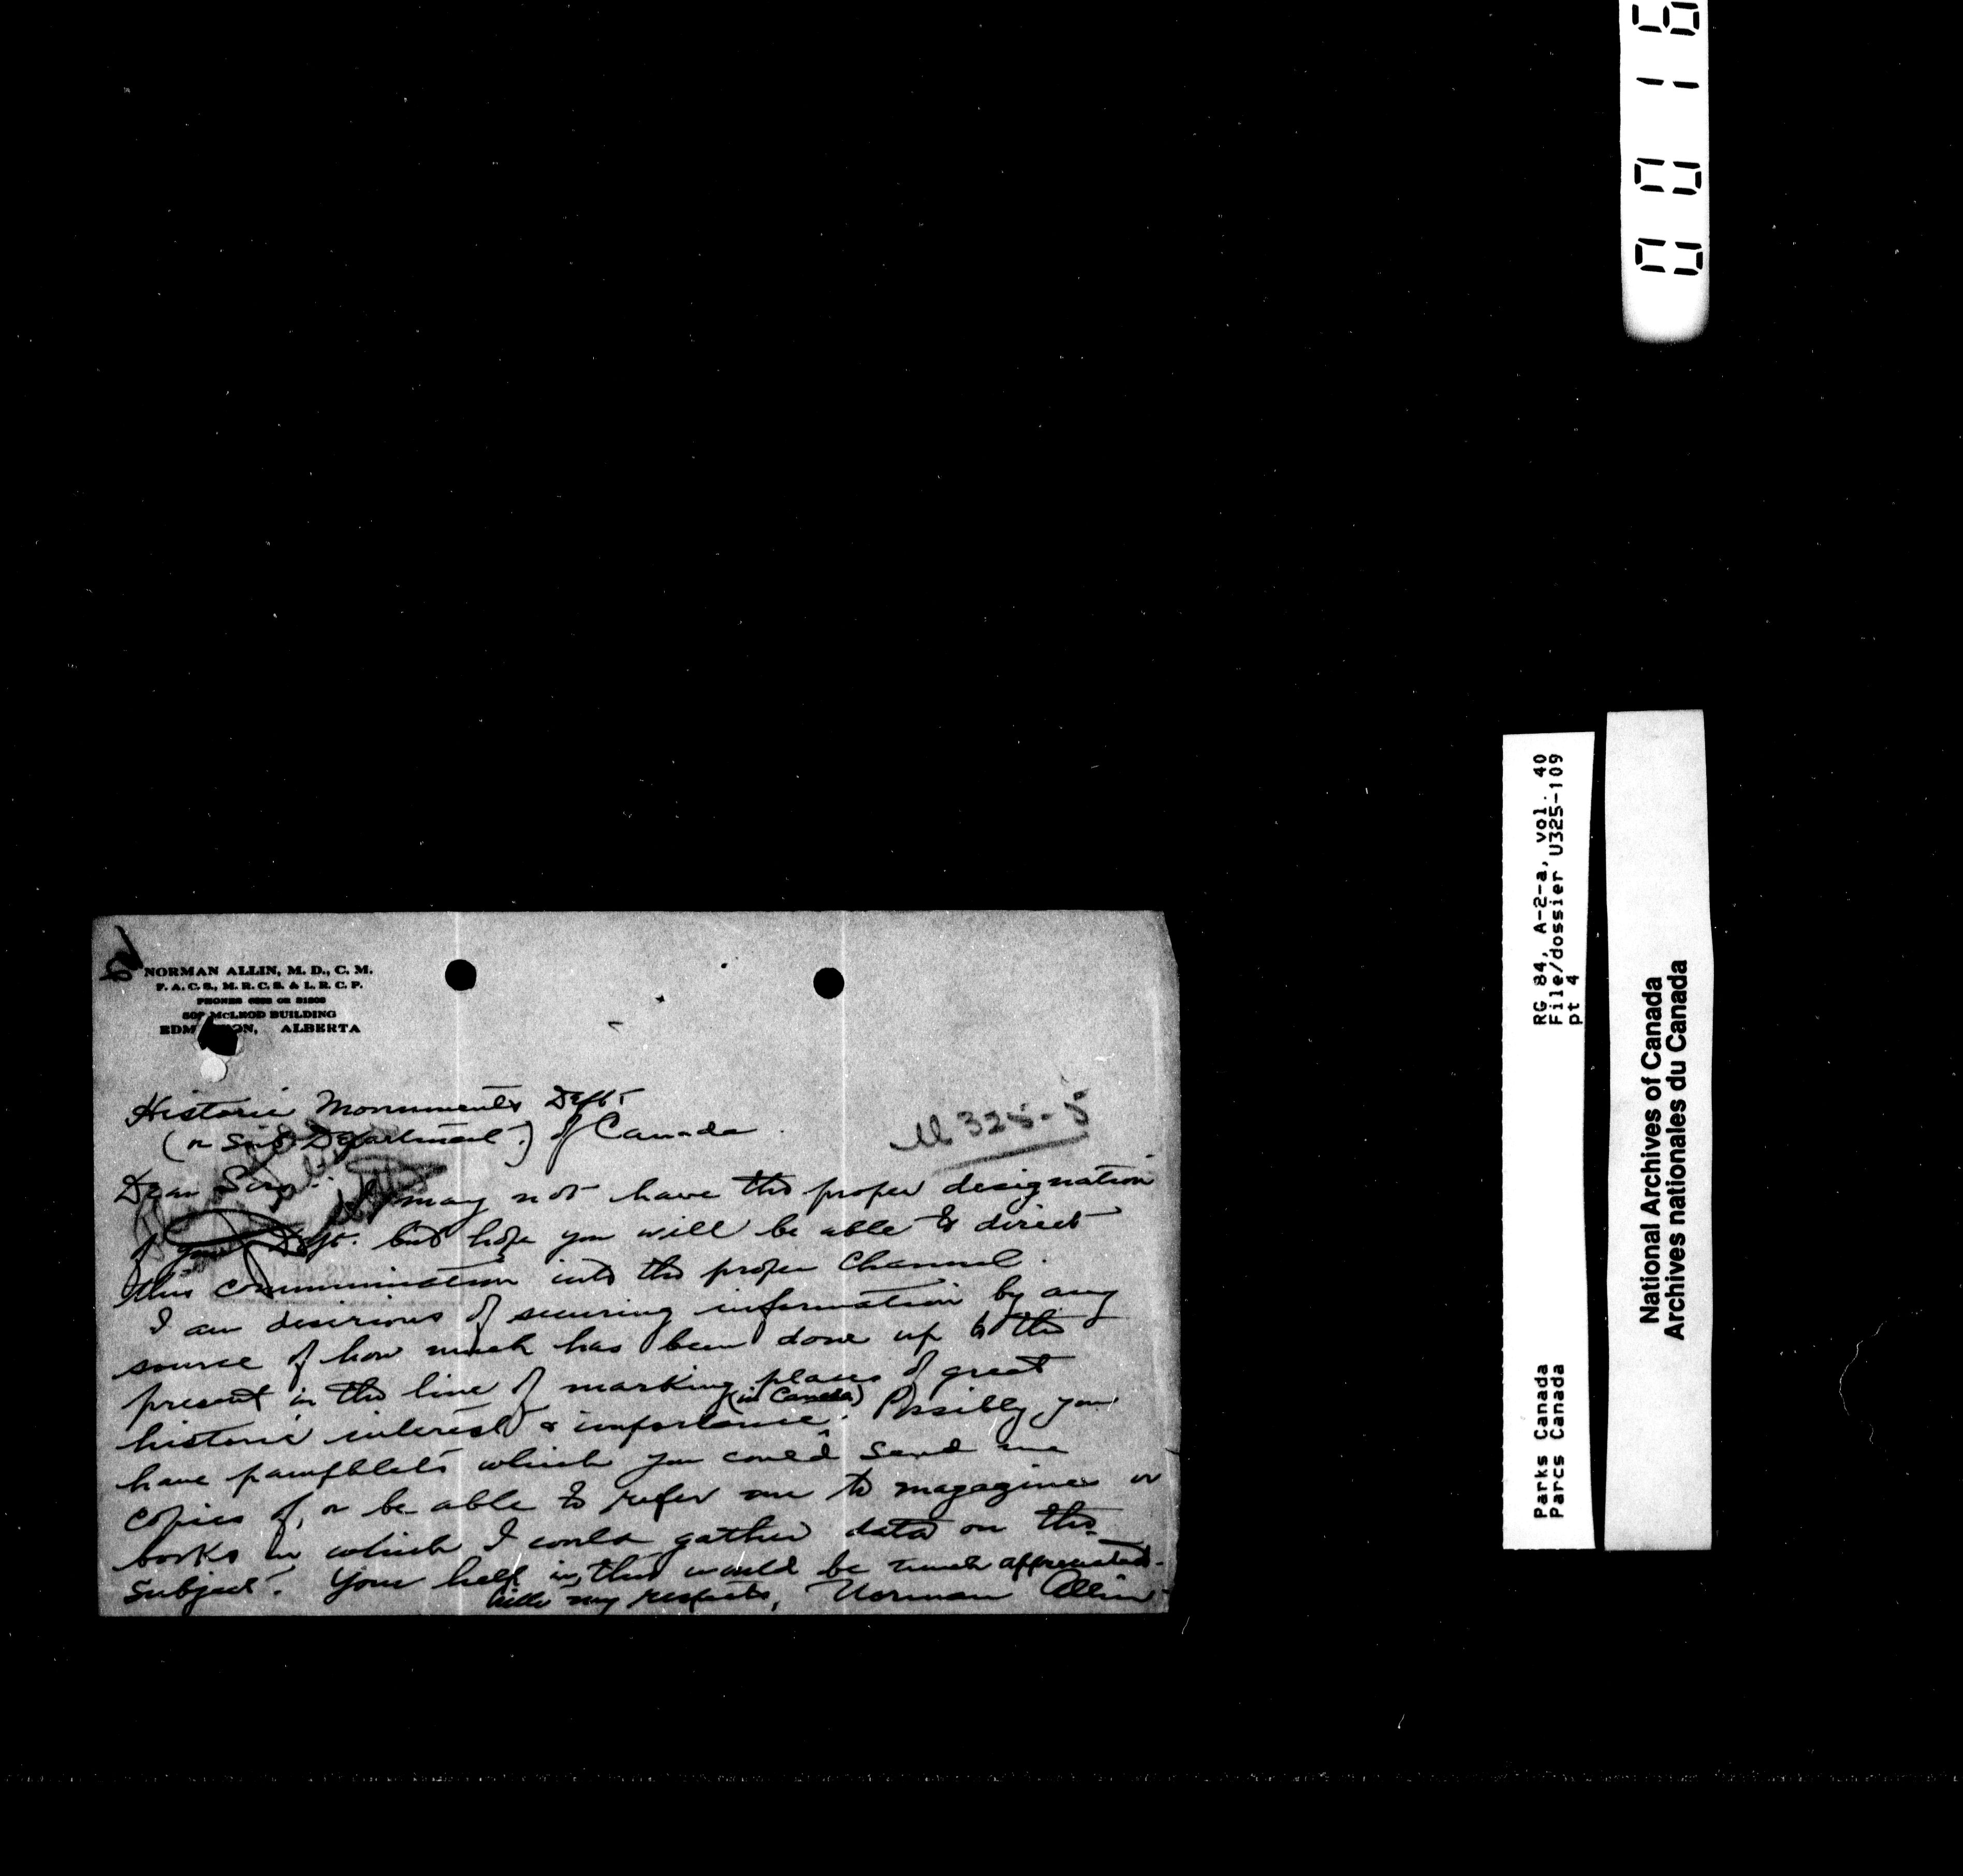 NORMAN ALLIN, M. D., C. M.
F. A. C. S., M. R. C. S. & L. R. C. P.
PHONES OR
McLEOD BUILDING
EDM ON, ALBERTA
Historic Monuments Dept.
(or Department) of Canada
U 325-5
Dear Sirs: I may not have the proper designation
of your Dept. but hope you will be able to direct
this communication into the proper Channel.
I am desirious of securing information by any
source of how much has been done up to the
present in the line of marking places of great
historic interest & importance (in Canada). Possibly you
have pamphlets which you could send me
copies of, or be able to refer me to magazines or
books in which I could gather data on the
subject. Your help in this would be much appreciated.
With my respects, Norman Allin
0016
RG 84, A-2-a, vol. 40
File/dossier U325-109
pt 4
Parks Canada
Parcs Canada
National Archives of Canada
Archives nationales du Canada